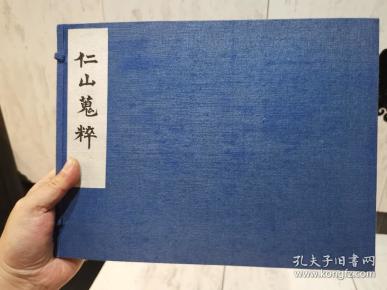 仁山蒐粹
孔夫子旧書网
www.kongfz.com